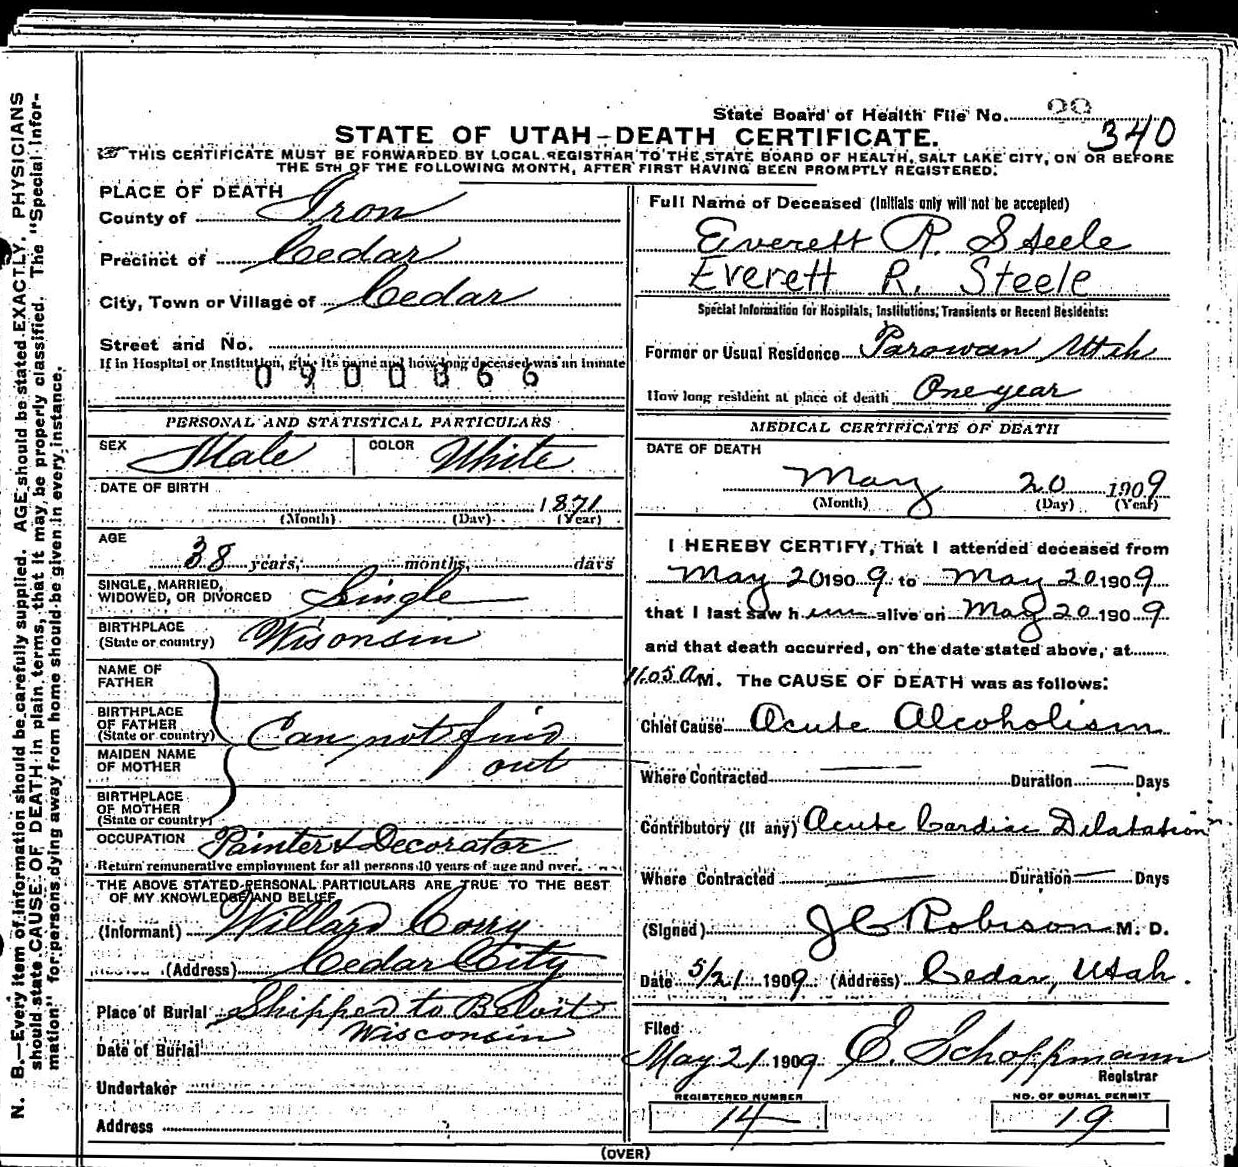 State Board of Health File No. 99
340
STATE OF UTAH—DEATH CERTIFICATE.
THIS CERTIFICATE MUST BE FORWARDED BY LOCAL REGISTRAR TO THE STATE BOARD OF HEALTH, SALT LAKE CITY, ON OR BEFORE
THE 5TH OF THE FOLLOWING MONTH, AFTER FIRST HAVING BEEN PROMPTLY REGISTERED.
N. B.—Every item of information should be carefully supplied. AGE should be stated EXACTLY. PHYSICIANS
should state CAUSE OF DEATH in plain terms, that it may be properly classified. The "Special Infor-
mation" for persons dying away from home should be given in every instance.
PLACE OF DEATH
County of Iron
Precinct of Cedar
City, Town or Village of Cedar
Street and No.
If in Hospital or Institution, give its name and how long deceased was an inmate
0900366
PERSONAL AND STATISTICAL PARTICULARS
SEX Male COLOR White
DATE OF BIRTH
1871
(Month) (Day) (Year)
AGE
38 years, months, days
SINGLE, MARRIED,
WIDOWED, OR DIVORCED Single
BIRTHPLACE
(State or country) Wisonsin
NAME OF
FATHER
BIRTHPLACE
OF FATHER
(State or country) Can not find
MAIDEN NAME
OF MOTHER out
BIRTHPLACE
OF MOTHER
(State or country)
OCCUPATION Painter & Decorator
Return remunerative employment for all persons 10 years of age and over.
THE ABOVE STATED PERSONAL PARTICULARS ARE TRUE TO THE BEST
OF MY KNOWLEDGE AND BELIEF
(Informant) Willard Corry
(Address) Cedar City
Place of Burial Shipped to Beloit
Wisconsin
Date of Burial
Undertaker
Address
Full Name of Deceased (Initials only will not be accepted)
Everett R. Steele
Everett R. Steele
Special Information for Hospitals, Institutions, Transients or Recent Residents:
Former or Usual Residence Parowan Utah
How long resident at place of death One year
MEDICAL CERTIFICATE OF DEATH
DATE OF DEATH
May 20 1909
(Month) (Day) (Year)
I HEREBY CERTIFY, That I attended deceased from
May 20 1909 to May 20 1909
that I last saw him alive on May 20 1909
and that death occurred, on the date stated above, at
11.05 a M. The CAUSE OF DEATH was as follows:
Chief Cause Acute Alcoholism
Where Contracted — Duration — Days
Contributory (If any) Acute Cardiac Dilatation
Where Contracted — Duration — Days
(Signed) J C Robison M. D.
Date 5/21 1909 (Address) Cedar, Utah.
Filed
May 21 1909 E. Schoppmann
Registrar
REGISTERED NUMBER NO. OF BURIAL PERMIT
14 19
(OVER)